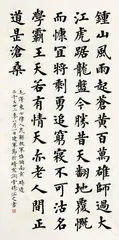 鍾山風雨起蒼黃百萬雄師過大
江虎踞龍盤今勝昔天翻地覆慨
而慷宜將剩勇追窮寇不可沽名
學霸王天若有情天亦老人間正
道是滄桑
毛澤東七律人民解放軍佔領南京